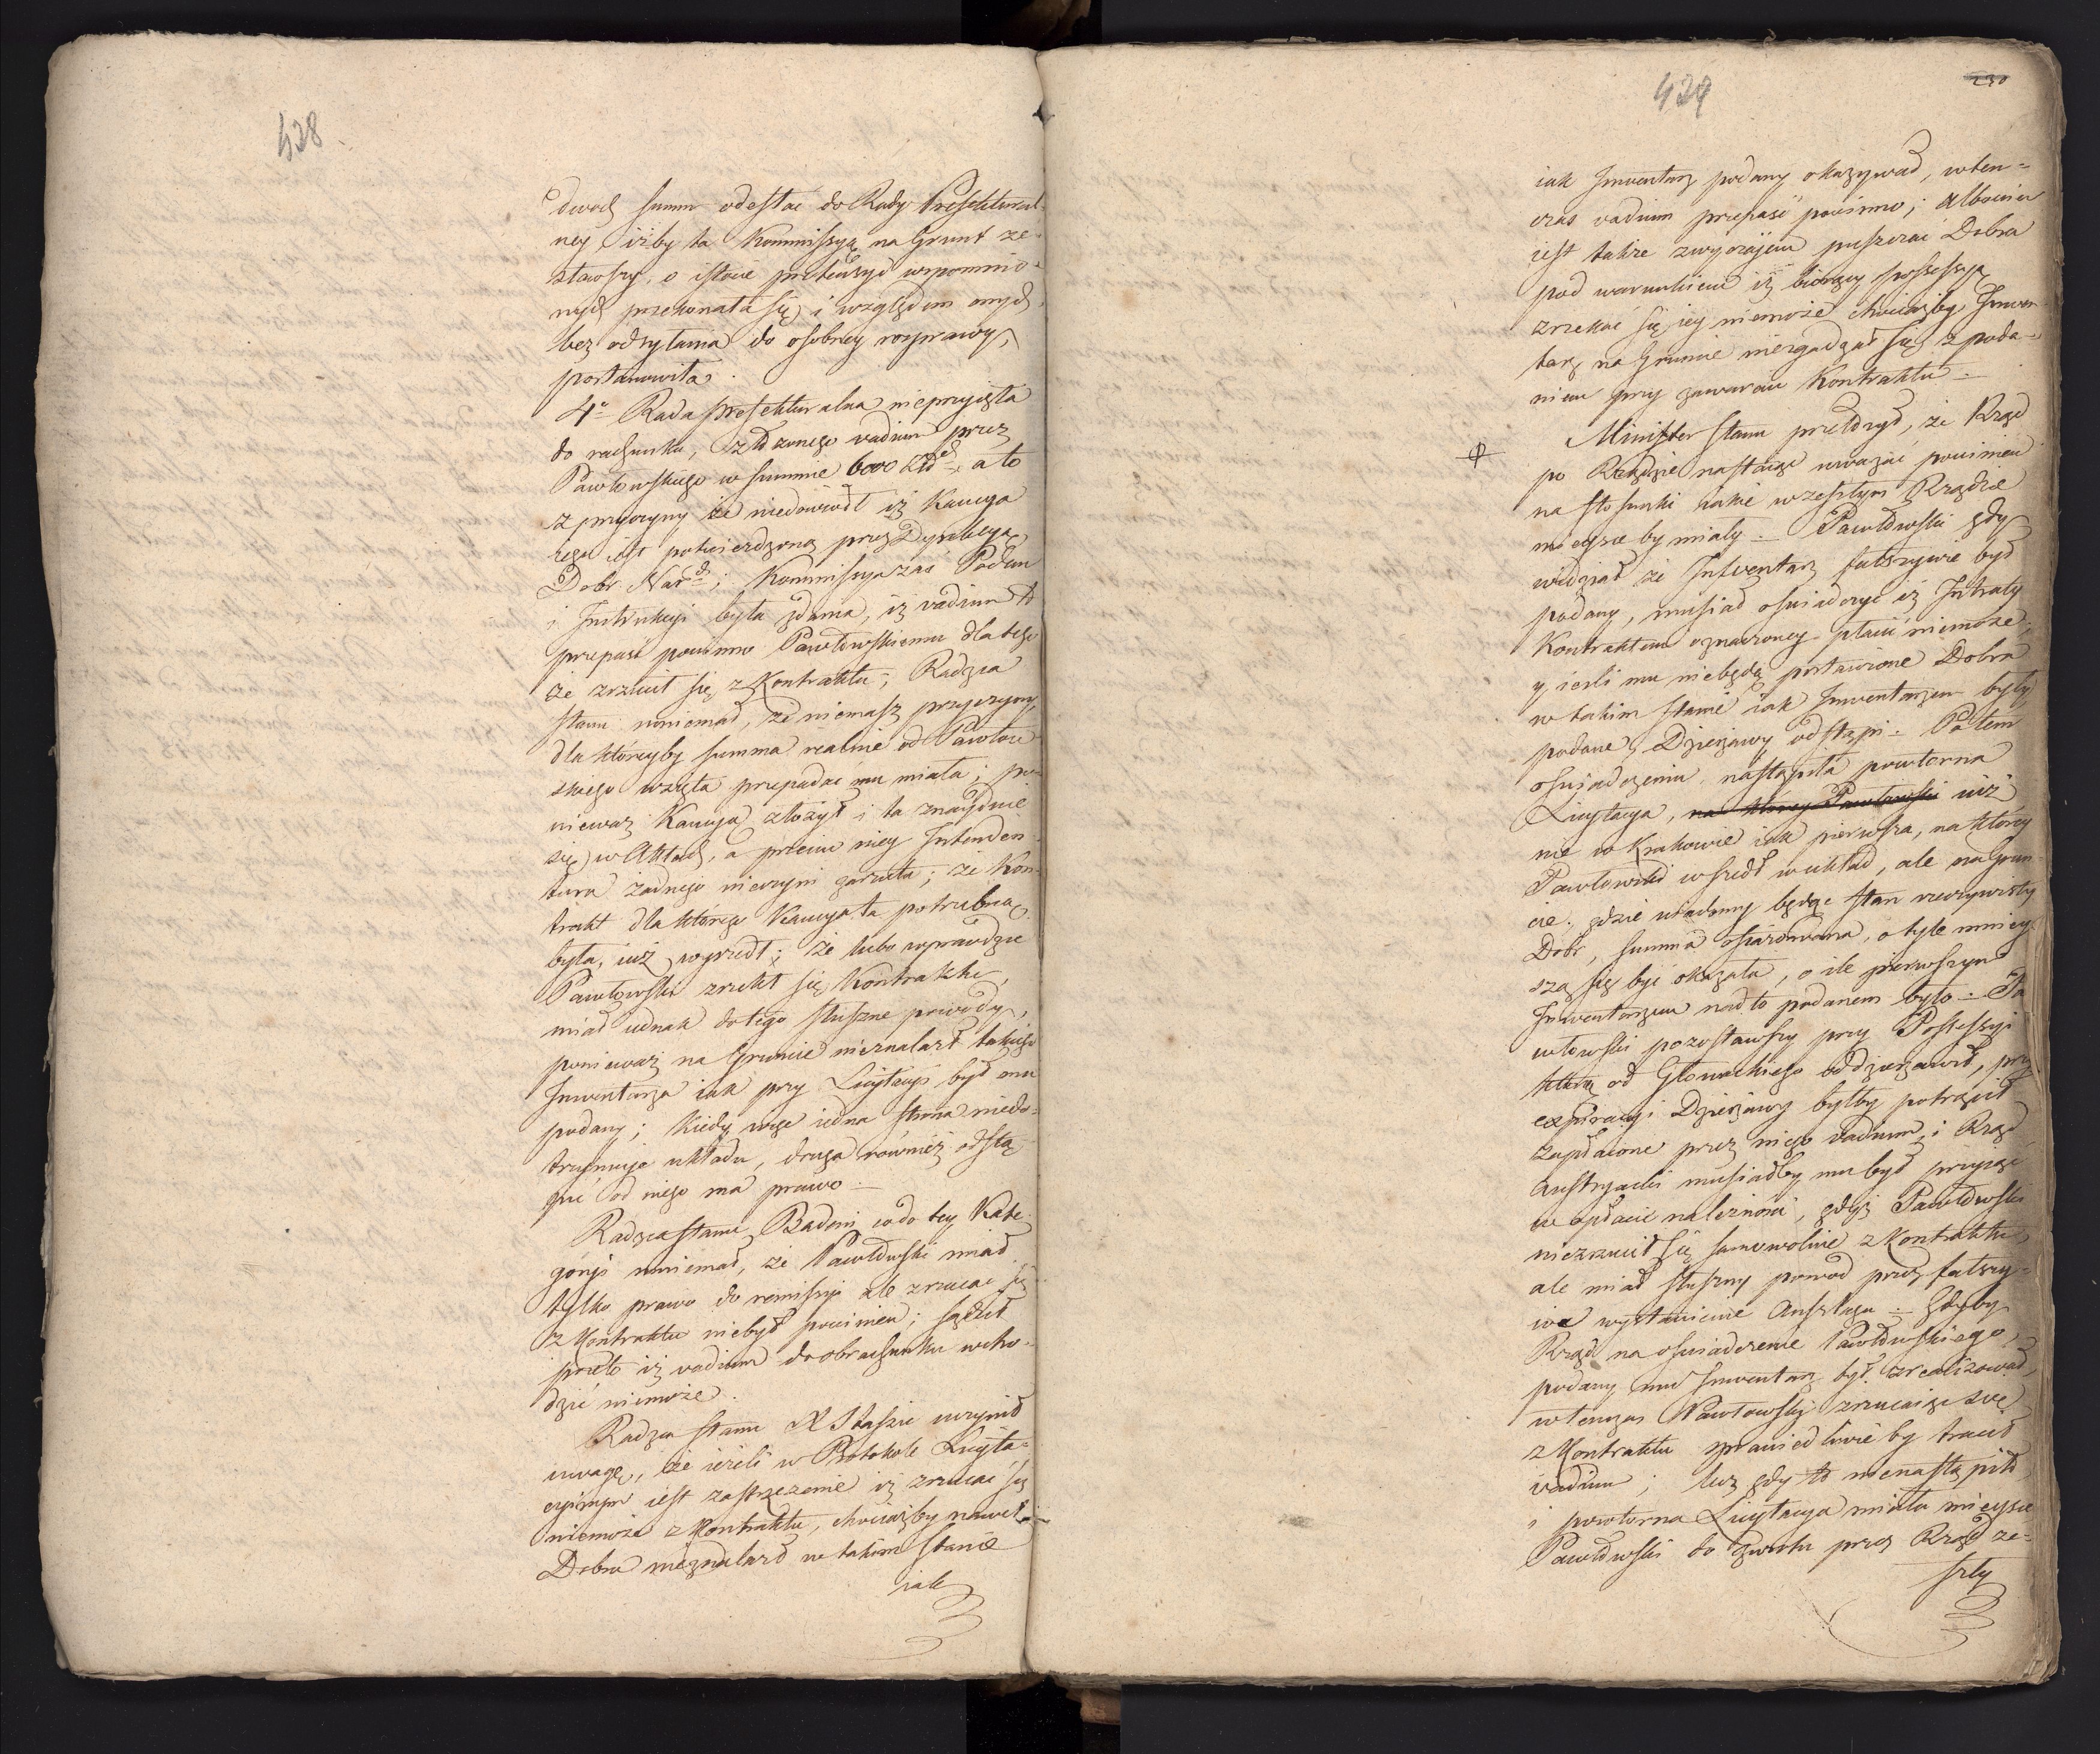 438
dwoch summ odesłać do Rady Prefektural-
ney iżby ta Kommissyą na Grunt ze-
sławszy, o istocie pretensyi wspomnio-
nych przekonała się i względem onych
bez odsyłania do osobney rozprawy,
postanowiła.
4o Rada Prefekturalna nieprzyięła
do rachunku, złożonego vadium przez
Pawłowskiego w summie 6000 Złch a to
z przyczyny że niedowiodł iż Kaucya
iego iest potwierdzoną przez Dyrekcyą
Dobr. Nar.d; Kommissya zaś Podań
i Instrukcyi była zdania, iż vadium to
przepaść powinno Pawłowskiemu dla tego
że zrzucił się z Kontraktu; Radzca
stanu mniemał, że niemasz przyczyny
dla któreyby summa realnie od Pawłow-
skiego wzięta przepadać mu miała; po-
nieważ Kaucyą złożył i ta znayduie
się w Aktach, a przeciw niey Intenden-
tura żadnego nieczyni zarzutu; że Kon-
trakt dla którego Kaucya ta potrzebną
była, iuż wyszedł; że lubo wprawdzie
Pawłowski zrzekł się Kontraktu,
miał iednak do tego słuszne powody,
ponieważ na Gruncie nieznalazł takiego
Inwentarza iak przy Licytacyi był mu
podany; kiedy więc iedna strona niedo-
trzymuje układu, druga również odstą-
pić od niego ma prawo.
Radzca stanu Badeni co do tey Kate-
goryi mniemał, że Pawłowski miał
tylko prawo do remissyi ale zrzucać się
z Kontraktu niebył powinien; sądził
przeto iż vadium do obrachunku wcho-
dzić niemoże.
Radzca stanu X Staszic uczynił
uwagę, że ieżeli w Protokole Licyta-
cyinym iest zastrzeżenie iż zrzucać się
niemoże z Kontraktu, chociażby nawet
Dobra nieznalazł w takim stanie
iak
439
230
iak Inwentarz podany okazywał, wten-
czas vadium przepaść powinno; albowiem
iest także zwyczajem puszczać Dobra
pod warunkiem iż biorący possessyą
zrzekać się iey niemoże chociażby Inwen-
tarz na Gruncie niezgadzał się z poda-
niem przy zawarciu Kontraktu.
Minister stanu przełożył, że Rząd
po Rządzie nastaiąc uważać powinien
na stosunki iakie w zeszłym Rządzie
mieysce by miały. Pawłowski gdy
widział że Inwentarz fałszywie był
podany, musiał oświadczyć iż Intraty
Kontraktem oznaczoney płacić niemoże;
y ieśli mu niebędą postawione Dobra
w takim stanie iak Inwentarzem były
podane, Dzierżawy odstąpi. Potem
oświadczeniu nastąpiła powtorna
Licytacya, na którey Pawłowski iuż
nie w Krakowie iak pierwsza, na którey
Pawłowski wszedł w układ, ale na Grun-
cie; gdzie wiadomy będąc stan rzeczywisty
Dobr, summa ofiarowana, o tyle mniey-
szą się być okazała, o ile pierwszym
Inwentarzem nadto podanem było. Pa
włowski pozostawszy przy Possessyi
którą od Głowackiego oddzierżawił, przy
expiracyi Dzierżawy byłby potrącił
zapłacone przez niego vadium, i Rząd
Austryacki musiałby mu był przyiąć
w opłacie należności, gdyż Pawłowski
niezrzucił się samowolnie z Kontraktu,
ale miał słuszny powod przez fałszy-
we wystawienie Anszlagu. Gdyby
Rząd na oświadczenie Pawłowskiego,
podany mu Inwentarz był zrealizował,
wtenczas Pawłowski zrzucaiąc się
z Kontraktu sprawiedliwie by tracił
vadium; lecz gdy to nienastąpiło
i powtorna Licytacya miała mieysce
Pawłowski do zwrotu przez Rząd ze-
szły